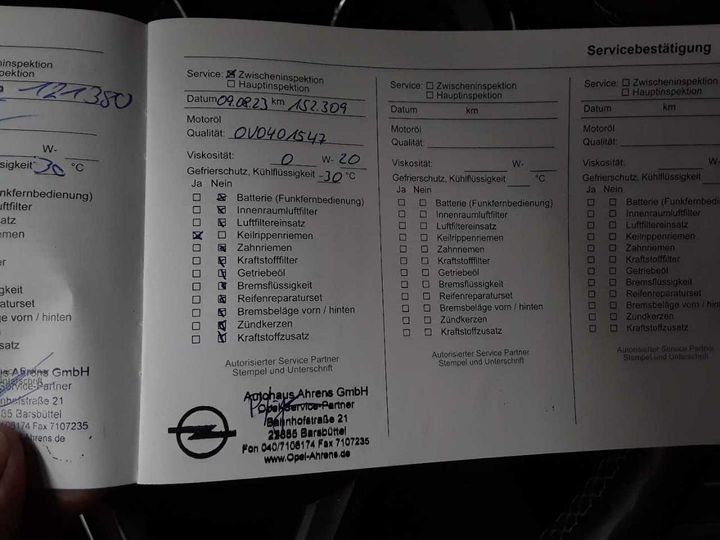 Servicebestätigung
eninspektion
pektion
121380
W-
ssigkeit -30 °C
unkfernbedienung)
uftfilter
satz
iemen
er
sigkeit
araturset
läge vorn / hinten
usatz
Service-Partner
Unterschrift
Ahrens GmbH
Service-Partner
nhofstraße 21
85 Barsbüttel
06174 Fax 7107235
Ahrens.de
Service: ☒ Zwischeninspektion
☐ Hauptinspektion
Datum 09.08.23 km 152.309
Motoröl
Qualität: OV0401547
Viskosität: 0 W- 20
Gefrierschutz, Kühlflüssigkeit -30 °C
Ja Nein
☐ ☒ Batterie (Funkfernbedienung)
☐ ☒ Innenraumluftfilter
☐ ☒ Luftfiltereinsatz
☒ ☐ Keilrippenriemen
☐ ☒ Zahnriemen
☐ ☒ Kraftstofffilter
☐ ☒ Getriebeöl
☐ ☒ Bremsflüssigkeit
☐ ☒ Reifenreparaturset
☐ ☒ Bremsbeläge vorn / hinten
☐ ☒ Zündkerzen
☐ ☒ Kraftstoffzusatz
Autorisierter Service Partner
Stempel und Unterschrift
Autohaus Ahrens GmbH
Opel-Service-Partner
Bahnhofstraße 21
22885 Barsbüttel
Fon 040/7106174 Fax 7107235
www.Opel-Ahrens.de
Service: ☐ Zwischeninspektion
☐ Hauptinspektion
Datum km
Motoröl
Qualität:
Viskosität: W-
Gefrierschutz, Kühlflüssigkeit °C
Ja Nein
☐ ☐ Batterie (Funkfernbedienung)
☐ ☐ Innenraumluftfilter
☐ ☐ Luftfiltereinsatz
☐ ☐ Keilrippenriemen
☐ ☐ Zahnriemen
☐ ☐ Kraftstofffilter
☐ ☐ Getriebeöl
☐ ☐ Bremsflüssigkeit
☐ ☐ Reifenreparaturset
☐ ☐ Bremsbeläge vorn / hinten
☐ ☐ Zündkerzen
☐ ☐ Kraftstoffzusatz
Autorisierter Service Partner
Stempel und Unterschrift
Service: ☐ Zwischeninspektion
☐ Hauptinspektion
Datum km
Motoröl
Qualität:
Viskosität: W-
Gefrierschutz, Kühlflüssigkeit
Ja Nein
☐ ☐ Batterie (Funkfernbedie
☐ ☐ Innenraumluftfilter
☐ ☐ Luftfiltereinsatz
☐ ☐ Keilrippenriemen
☐ ☐ Zahnriemen
☐ ☐ Kraftstofffilter
☐ ☐ Getriebeöl
☐ ☐ Bremsflüssigkeit
☐ ☐ Reifenreparaturset
☐ ☐ Bremsbeläge vorn / h
☐ ☐ Zündkerzen
☐ ☐ Kraftstoffzusatz
Autorisierter Service Partner
Stempel und Unterschrift